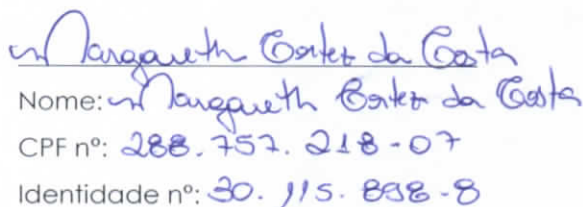 Margareth Cortez da Costa
Nome: Margareth Cortez da Costa
CPF nº: 288.757.218-07
Identidade nº: 30.115.898-8